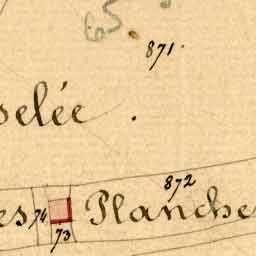 65
871.
selée.
872
es 74 Planche
73